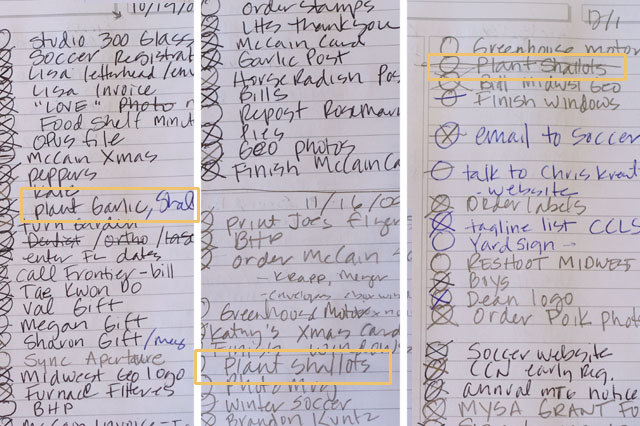 10/19/0
Studio 300 Glass
Soccer Registrat
Lisa letterhead/env
Lisa Invoice
"LOVE" Photo
Food Shelf Minut
Opus file
McCain Xmas
Peppers
Kale
Plant Garlic, Shal
Turn Garden
Dentist / Ortho /
enter FL dates
Call Frontier - bill
Tae Kwon Do
Val Gift
Megan Gift
Sharon Gift/
Sync Aperture
Midwest Geo Logo
Furnace Filteres
BHP
McCain Invoice -
Order Stamps
LHS thank you
McCain Card
Garlic Post
Horse Radish Pos
Bills
Repost Rosemar
Pies
Geo photos
Finish McCain Ca
11/16/0
Print Joe's
BHP
Order McCain
- Krapp,
- Envelopes
Greenhouse Motor
Kathy's Xmas Card
Finish Windows
Plant Shallots
Photo Mrg
Winter Soccer
Brandon Kuntz
12/1
Greenhouse motor
Plant Shallots
Bill Midwst Geo
Finish Windows
email to Soccer
talk to Chris
- website
Order labels
tagline list CCLS
Yard sign -
RESHOOT MIDWEST
Boys
Dean logo
Order Poik Phot
Soccer website
CCN early Reg.
annual mtg notice
MYSA GRANT FO